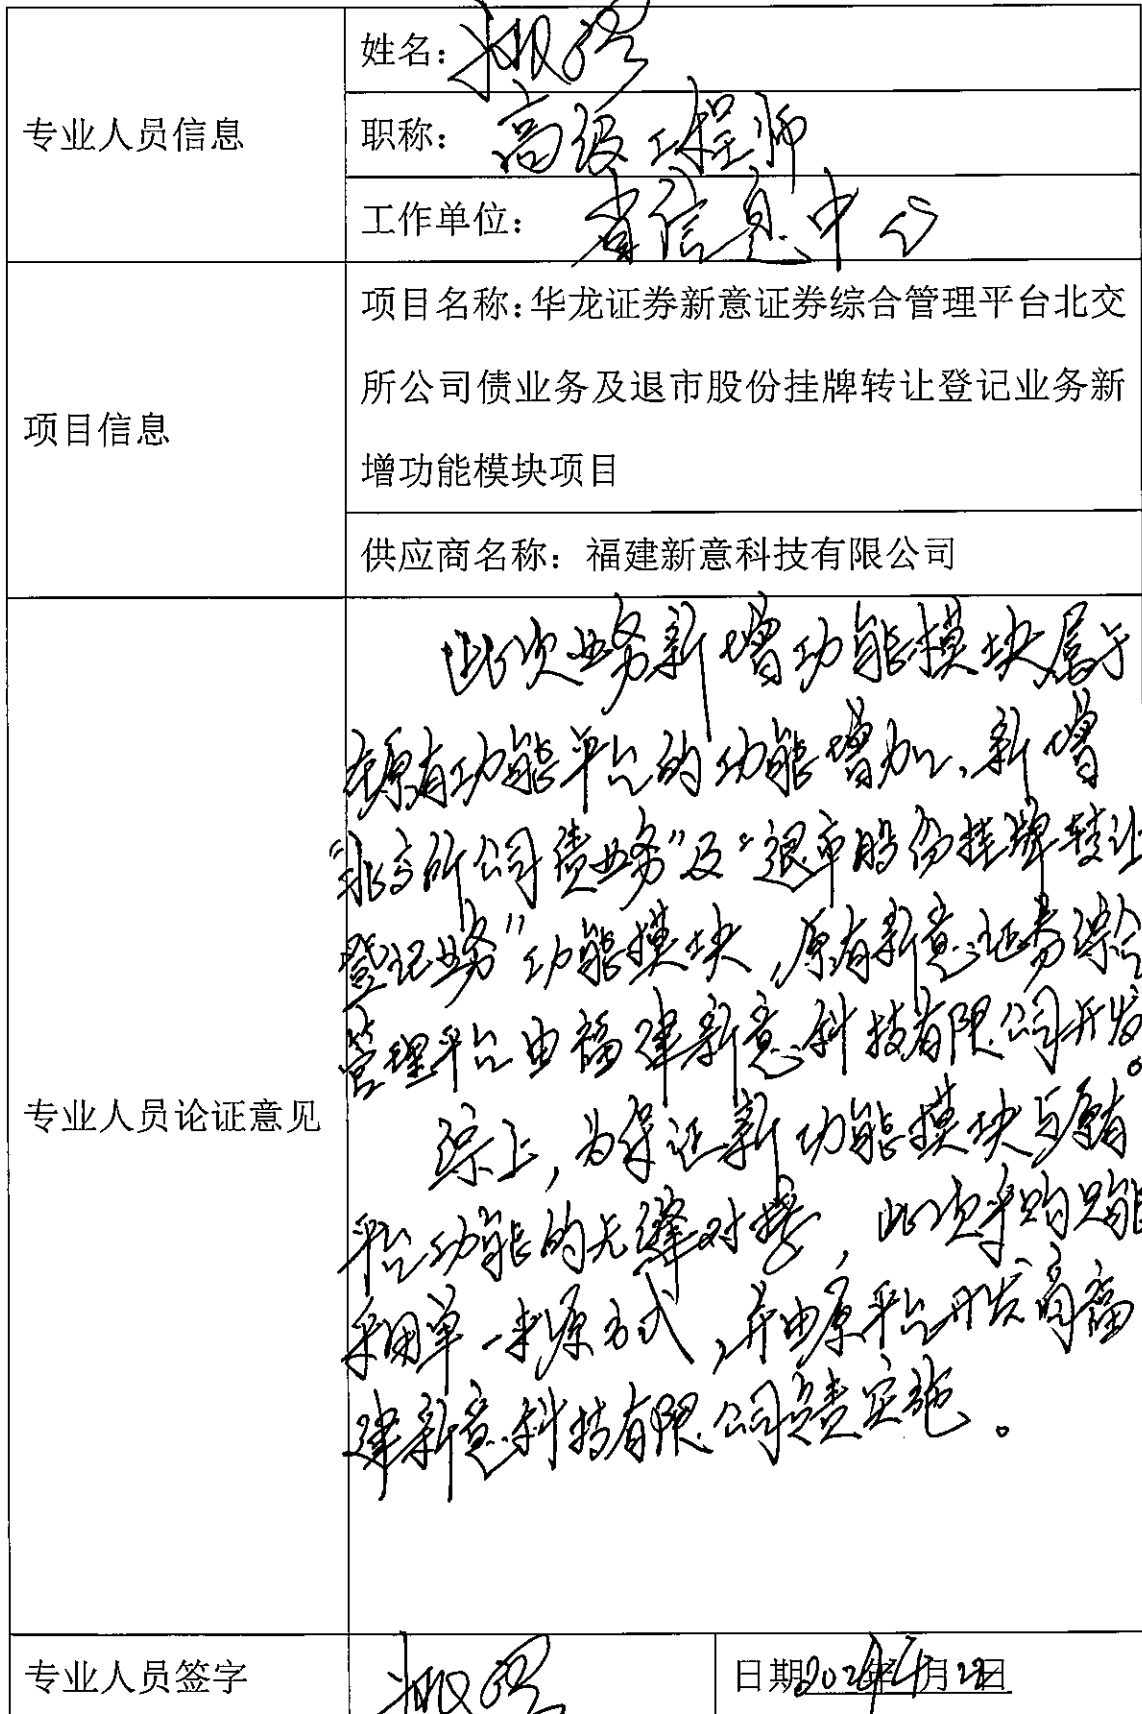 专业人员信息
姓名：
职称：高级工程师
工作单位：省信息中心
项目信息
项目名称：华龙证券新意证券综合管理平台北交
所公司债业务及退市股份挂牌转让登记业务新
增功能模块项目
供应商名称：福建新意科技有限公司
专业人员论证意见
此次业务新增功能模块属于
在原有功能平台的功能增加，新增
“北交所公司债业务”及“退市股份挂牌转让
登记业务”功能模块，原有新意证券综合
管理平台由福建新意科技有限公司开发。
综上，为保证新功能模块与原有
平台功能的无缝对接，此次采购只能
采用单一来源方式，并由原平台开发商福
建新意科技有限公司负责实施。
专业人员签字
日期 月 日